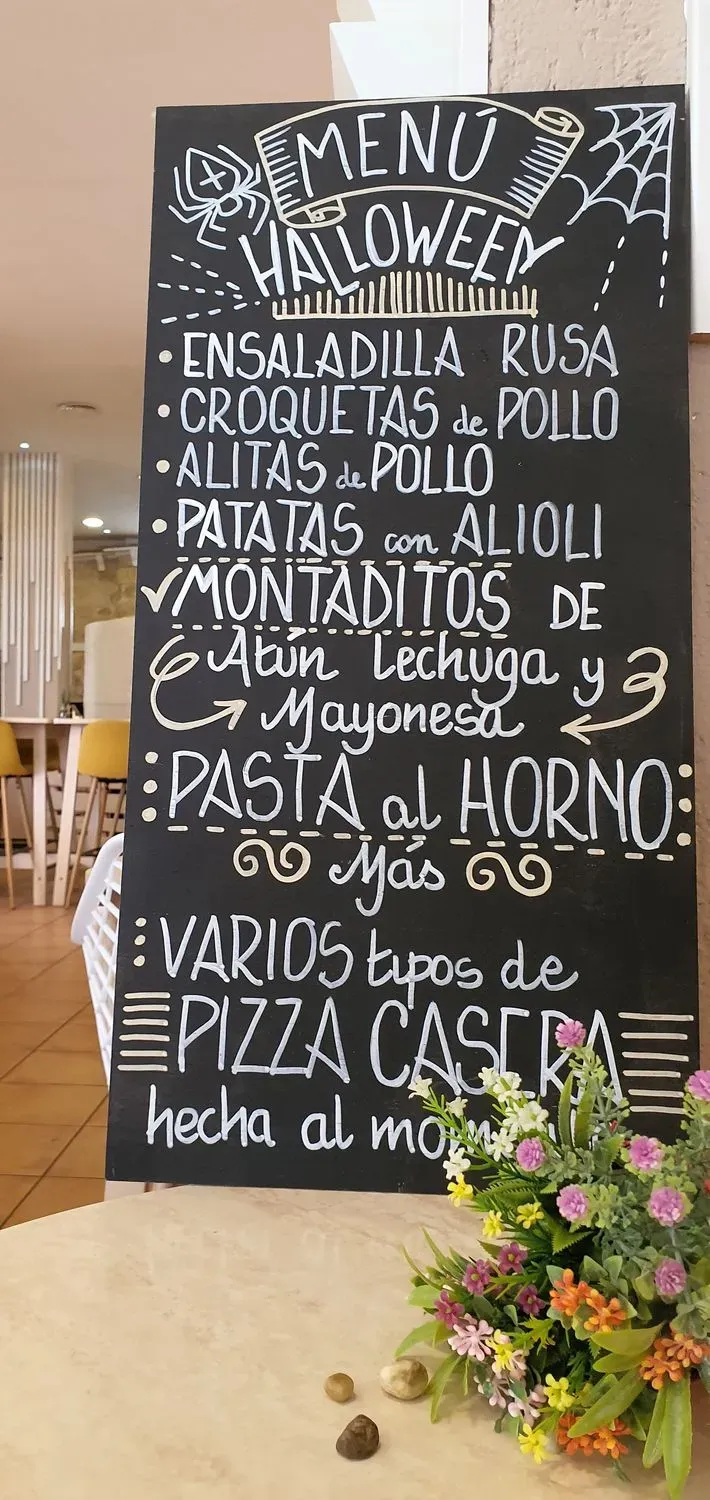 MENÚ
HALLOWEEN
• ENSALADILLA RUSA
• CROQUETAS de POLLO
• ALITAS de POLLO
• PATATAS con ALIOLI
✓ MONTADITOS DE
Atún Lechuga y
Mayonesa
PASTA al HORNO
Más
VARIOS tipos de
PIZZA CASERA
hecha al